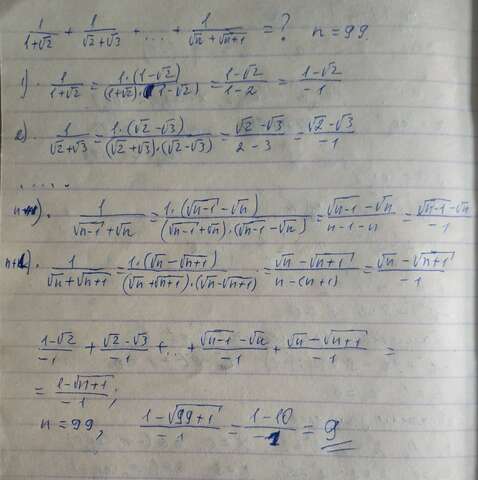 1/(1+√2) + 1/(√2+√3) + ... + 1/(√n+√(n+1)) = ? n=99
1). 1/(1+√2) = 1·(1-√2)/((1+√2)·(1-√2)) = (1-√2)/(1-2) = (1-√2)/(-1)
2). 1/(√2+√3) = 1·(√2-√3)/((√2+√3)·(√2-√3)) = (√2-√3)/(2-3) = (√2-√3)/(-1)
.....
1/(√(n-1)+√n) = 1·(√(n-1)-√n)/((√(n-1)+√n)·(√(n-1)-√n)) = (√(n-1)-√n)/(n-1-n) = (√(n-1)-√n)/(-1)
1/(√n+√(n+1)) = 1·(√n-√(n+1))/((√n+√(n+1))·(√n-√(n+1))) = (√n-√(n+1))/(n-(n+1)) = (√n-√(n+1))/(-1)
(1-√2)/(-1) + (√2-√3)/(-1) + ... + (√(n-1)-√n)/(-1) + (√n-√(n+1))/(-1) =
= (1-√(n+1))/(-1);
n=99, (1-√(99+1))/(-1) = (1-10)/(-1) = 9